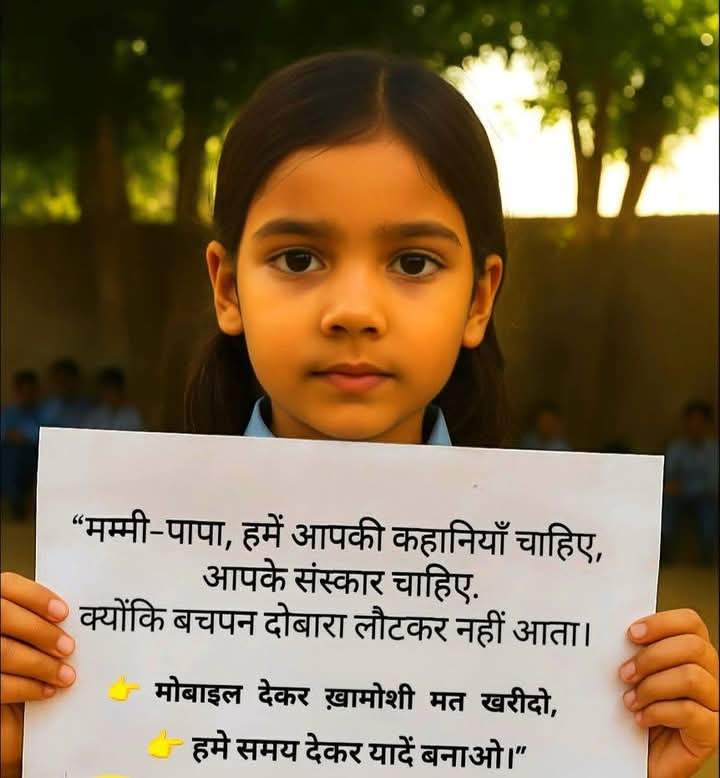 “मम्मी-पापा, हमें आपकी कहानियाँ चाहिए,
आपके संस्कार चाहिए.
क्योंकि बचपन दोबारा लौटकर नहीं आता।
👉 मोबाइल देकर ख़ामोशी मत खरीदो,
👉 हमे समय देकर यादें बनाओ।”